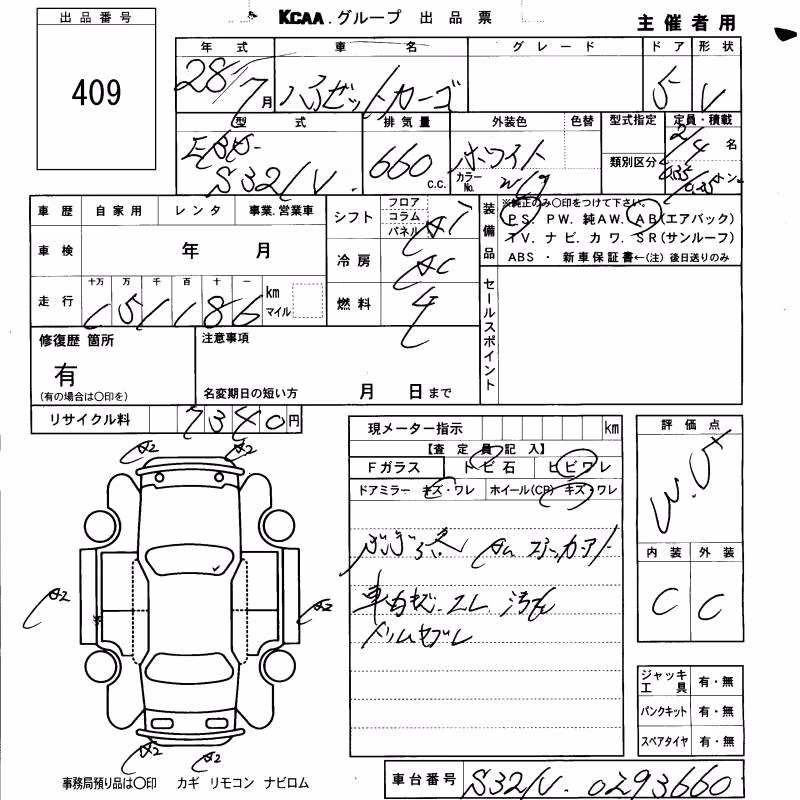 出品番号
409
KCAA.グループ 出品票
主催者用
年式 車名 グレード ドア 形状
28/7月 ハイゼットカーゴ 5 V
型式 排気量 外装色 色替 型式指定 定員・積載
EBD- S321V. 660 C.C. ホワイト 2/4 名
カラーNo. W19 類別区分 トン
車歴 自家用 レンタ 事業.営業車
シフト フロア コラム パネル AT
装備品 ※純正のみ○印をつけて下さい。
P.S. P.W. 純A.W. A.B(エアバック)
T.V. ナビ. カワ. S.R(サンルーフ)
ABS ・ 新車保証書←(注) 後日送りのみ
車検 年 月
冷房 AC
走行 十万 万 千 百 十 一 km マイル
151186
燃料
セールスポイント
修復歴 箇所
有
(有の場合は○印を)
注意事項
名変期日の短い方 月 日まで
リサイクル料 7340円
現メーター指示 km
【査定員記入】
Fガラス トビ石 ヒビワレ
ドアミラー キズ・ワレ ホイール(CP) キズ・ワレ
評価点
内装 外装
C C
A2 A2
A2 A2
A2 A2
ジャッキ工具 有・無
パンクキット 有・無
スペアタイヤ 有・無
事務局預り品は○印 カギ リモコン ナビロム
車台番号 S321V. 0293660